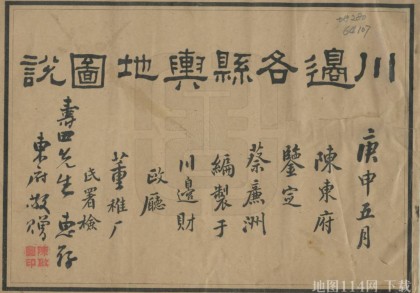 川邊各縣輿地圖說
庚申五月
陳東府
鑒定
蔡廉洲
編製于
川邊財
政廳
董稚厂
氏署檢
壽田先生惠存
東府敬贈
地图114网 下载